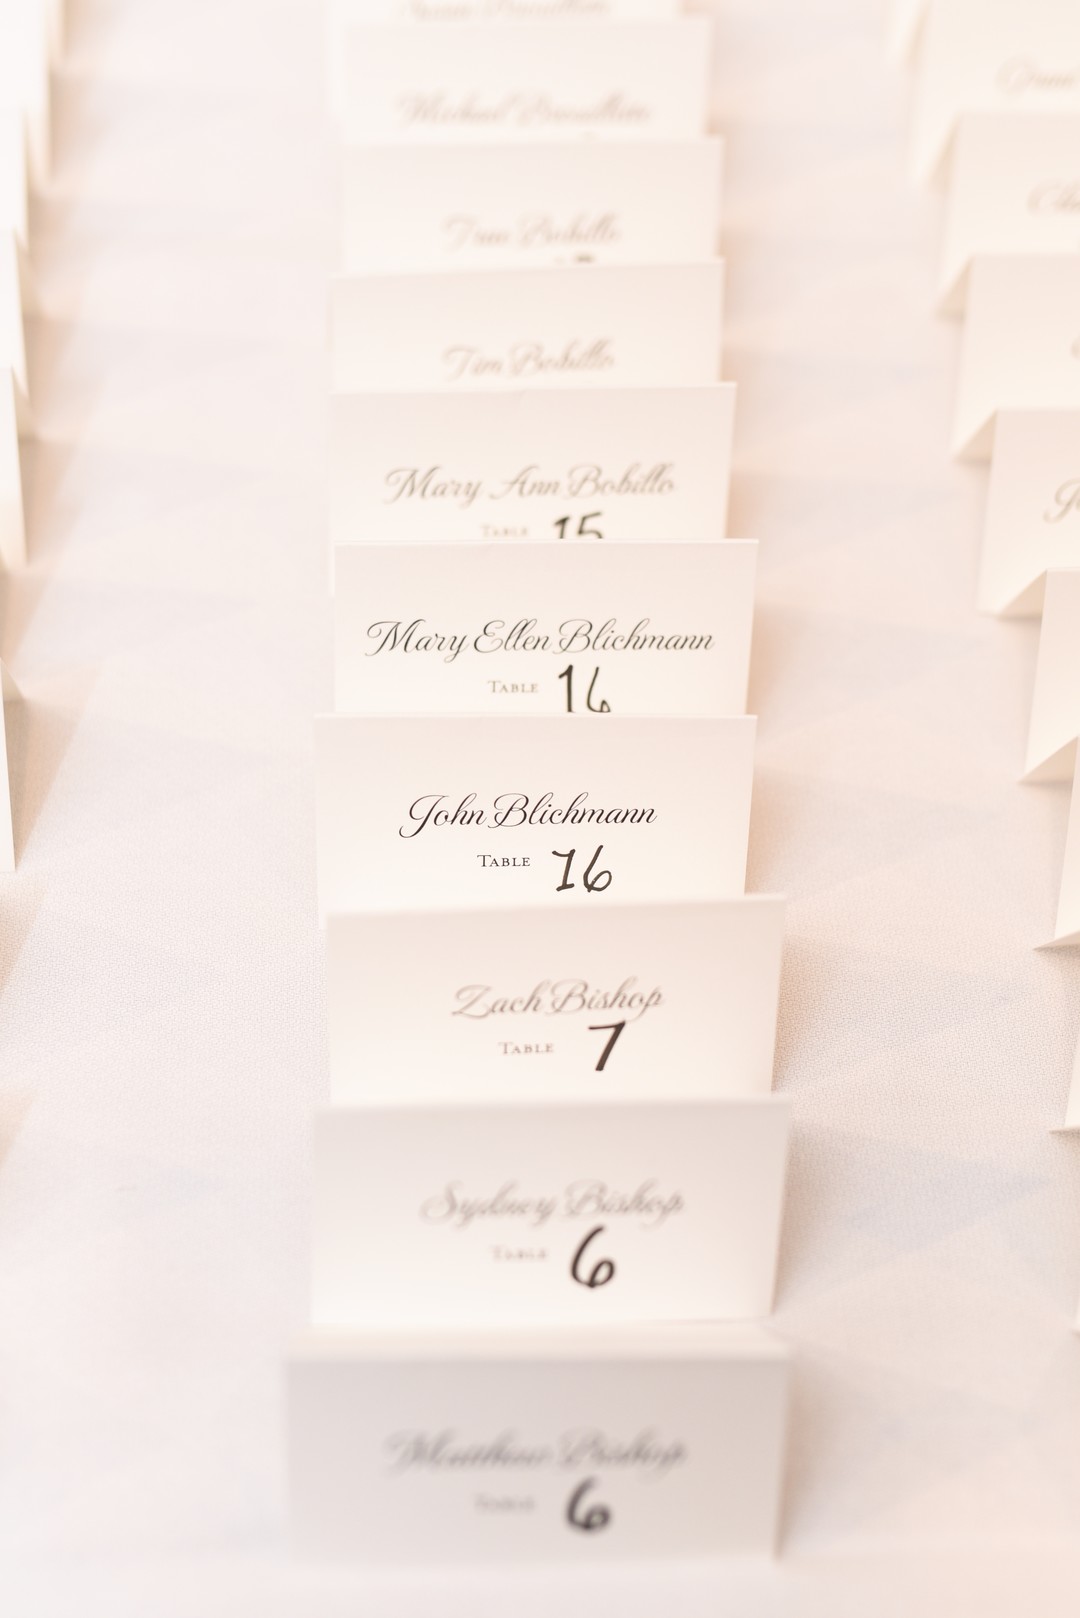 Tim Bobillo
Mary Ann Bobillo
TABLE 15
Mary Ellen Blichmann
TABLE 16
John Blichmann
TABLE 16
Zach Bishop
TABLE 7
Sydney Bishop
TABLE 6
Matthew Bishop
TABLE 6